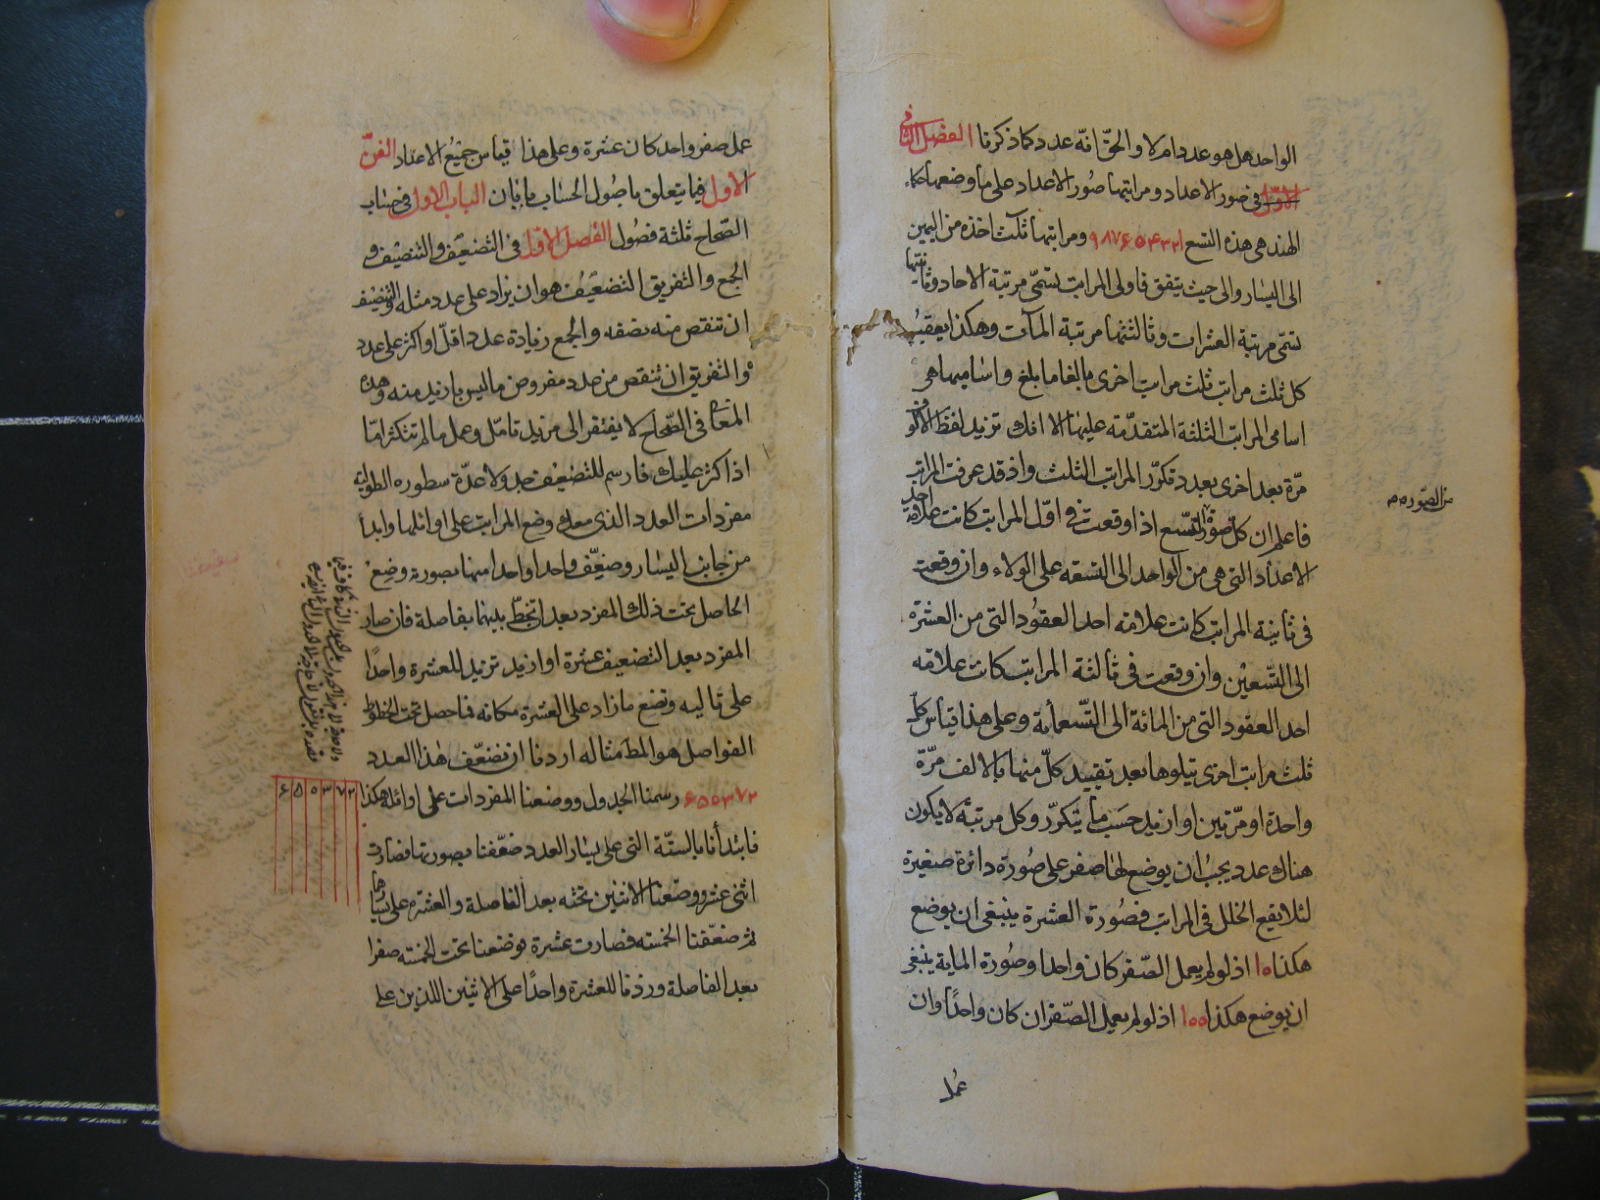 الواحد هل هو عدد ام لا والحق انّه عدد كما ذكرنا الفصل الثاني
الاول في صور الاعداد ومراتبها صُور الاعداد على ما وضعها حكماء
الهند هي هذه التسع ۱۲۳۴۵۶۷۸۹ ومراتبها ثلث اخذه من اليمين
الى اليسار والى حيث يتفق فاولى المراتب تسمّى مرتبة الاحاد وثانيتها
تسمّى مرتبة العشرات وثالثتها مرتبة المآت وهكذا يعقب
كل ثلث مراتب ثلث مراتب اخرى بالغا ما بلغ واساميها هي
اسامى المراتب الثلثة المتقدّمة عليها الا انك تزيد لفظ الالوف
مرّة بعد اخرى بعدد تكرّر المراتب الثلث واذ قد عرفت المراتب
فاعلم ان كلّ صورة التسع اذا وقعت في اوّل المراتب كانت علامة احد
من الصّور م
الاعداد التي هي من الواحد الى التسعه على الولاء وان وقعت
في ثانية المراتب كانت علامه احد العقود التي من العشرة
الى التّسعين وان وقعت في ثالثة المراتب كانت علامه
احد العقود التي من المائة الى التّسعمأية وعلى هذا قياس كلّ
ثلث مراتب اخرى تيلوها بعد تقييد كلّ منها بالالف مرّة
واحدة او مرّتين او ازيد حَسَب ما يتكرّر وكل مرتبة لا يكون
هناك عدد يجب ان يوضع لها صفر على صُورة دائرة صغيرة
لئلا يقع الخلل في المراتب فصُورة العشرة ينبغي ان يوضع
هكذا ۱۰ اذ لو لم يعمل الصّفر كان واحدا وصُورة الماية ينبغى
ان يوضع هكذا ۱۰۰ اذ لو لم يعمل الصّفران كان واحدًا وان
عمل
عمل صفر واحد كان عشرة وعلى هذا قياس جميع الاعداد الفنّ
الاول فيما يتعلق باصُول الحساب بابان الباب الاول في حساب
الصّحاح ثلثة فصُول الفصل الاوّل في التضعيف والتنصيف و
الجمع والتفريق التضعيف هو ان يزاد على عدد مثله والتنصيف
ان تنقص منه نصفه والجمع زيادة عدد اقلّ او اكثر على عدد
والتفريق ان تنقص من عدد مفروض ما ليس بازيد منه وهذه
في الصّحاح لا يفتقر الى مزيد تامّل وعمل ما لم تتكثر امّا
اذا كثر عليك فارسم للتضعيف جدولا عدّة سطوره الطولية
مفردات العدد الذى معك وضع المراتب على اوائلها وابدأ
من جانب اليسار وضعّف واحدا واحدا منها بصورته وضع
الحاصل تحت ذلك المفرد بعد ان تخطّ بينهما بفاصلة فان صار
المفرد بعد التضعيف عشرة او ازيد تزيد للعشرة واحدًا
على تاليه وتضع ما زاد على العشرة مكانه فما حصل تحت الخطوط
الفواصل هو المط مثاله اردنا ان نضعّف هذا العدد
۶۵۵۳۷۲ رسمنا الجدول ووضعنا المفردات على اوائله هكذا
۶ ۵ ۵ ۳ ۷ ۲
فابتدأنا بالستّة التي على يسار العدد ضعّفنا بصورتها فصارت
اثنى عشر ووضعنا الاثنين تحته بعد الفاصلة والعشرة على يسارها
ثم ضعّفنا الخمسه فصارت عشرة فوضعنا تحت الخمسه صفرا
بعد الفاصلة وزدنا للعشرة واحدًا على الاثنين اللذين على